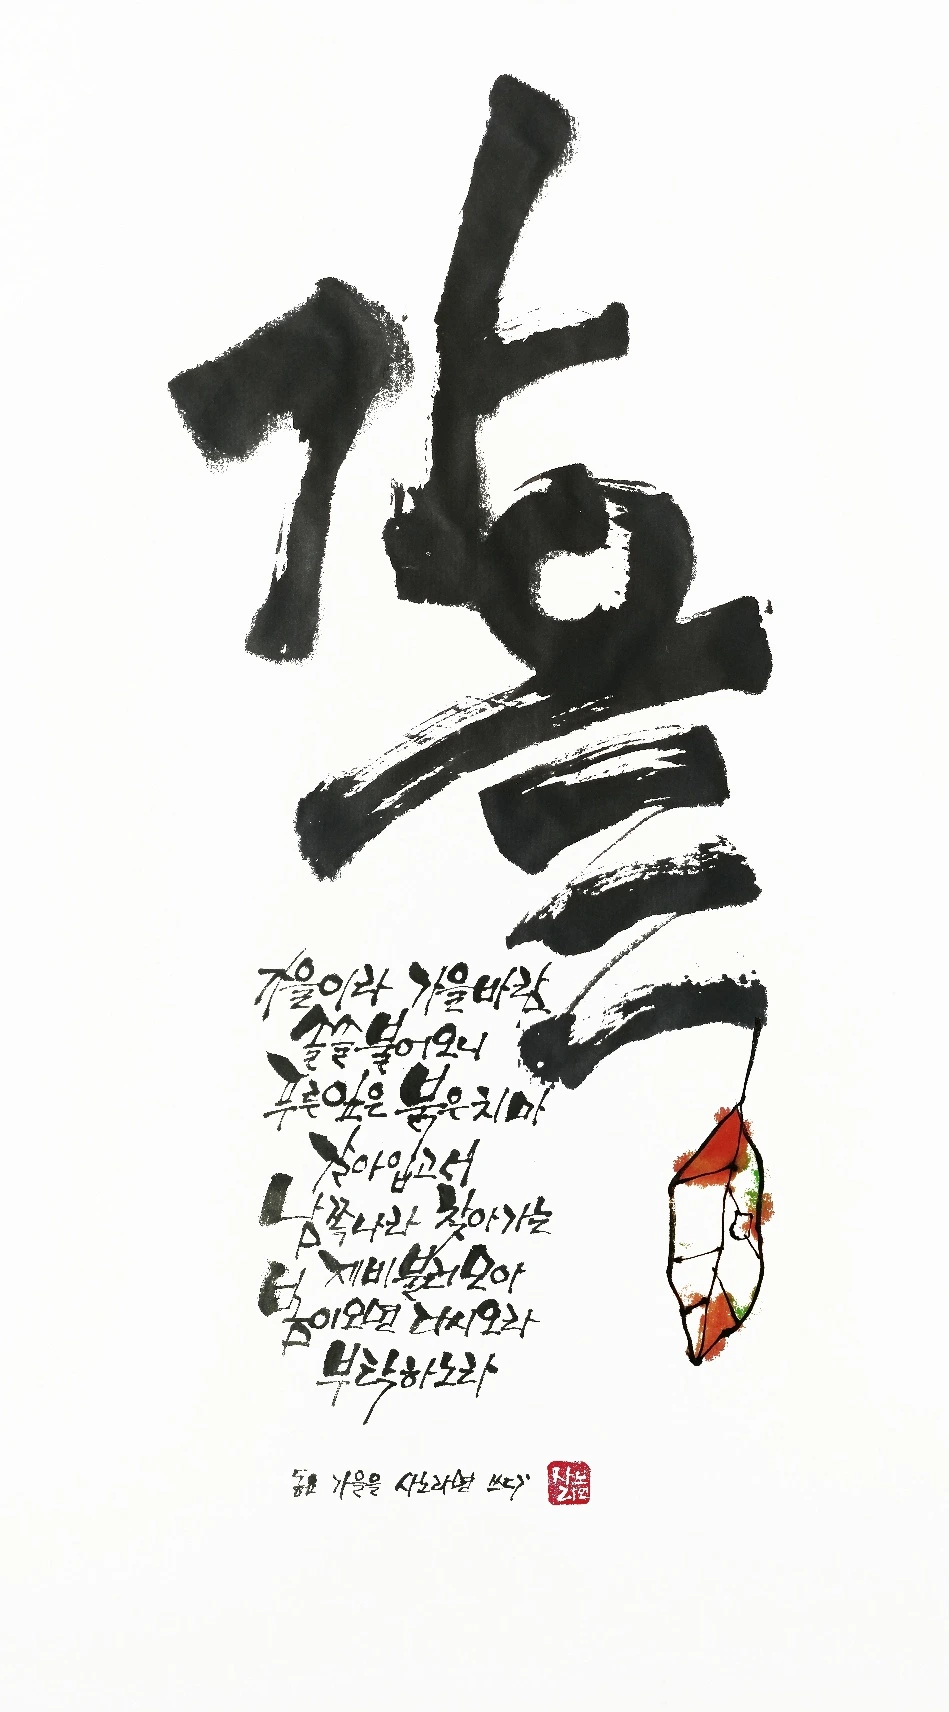 가을
가을이라 가을바람
솔솔 불어오니
푸른잎은 붉은치마
갈아입고서
남쪽나라 찾아가는
제비불러모아
봄이오면 다시오라
부탁하노라
동요 가을을 사노라면 쓰다
사노라면